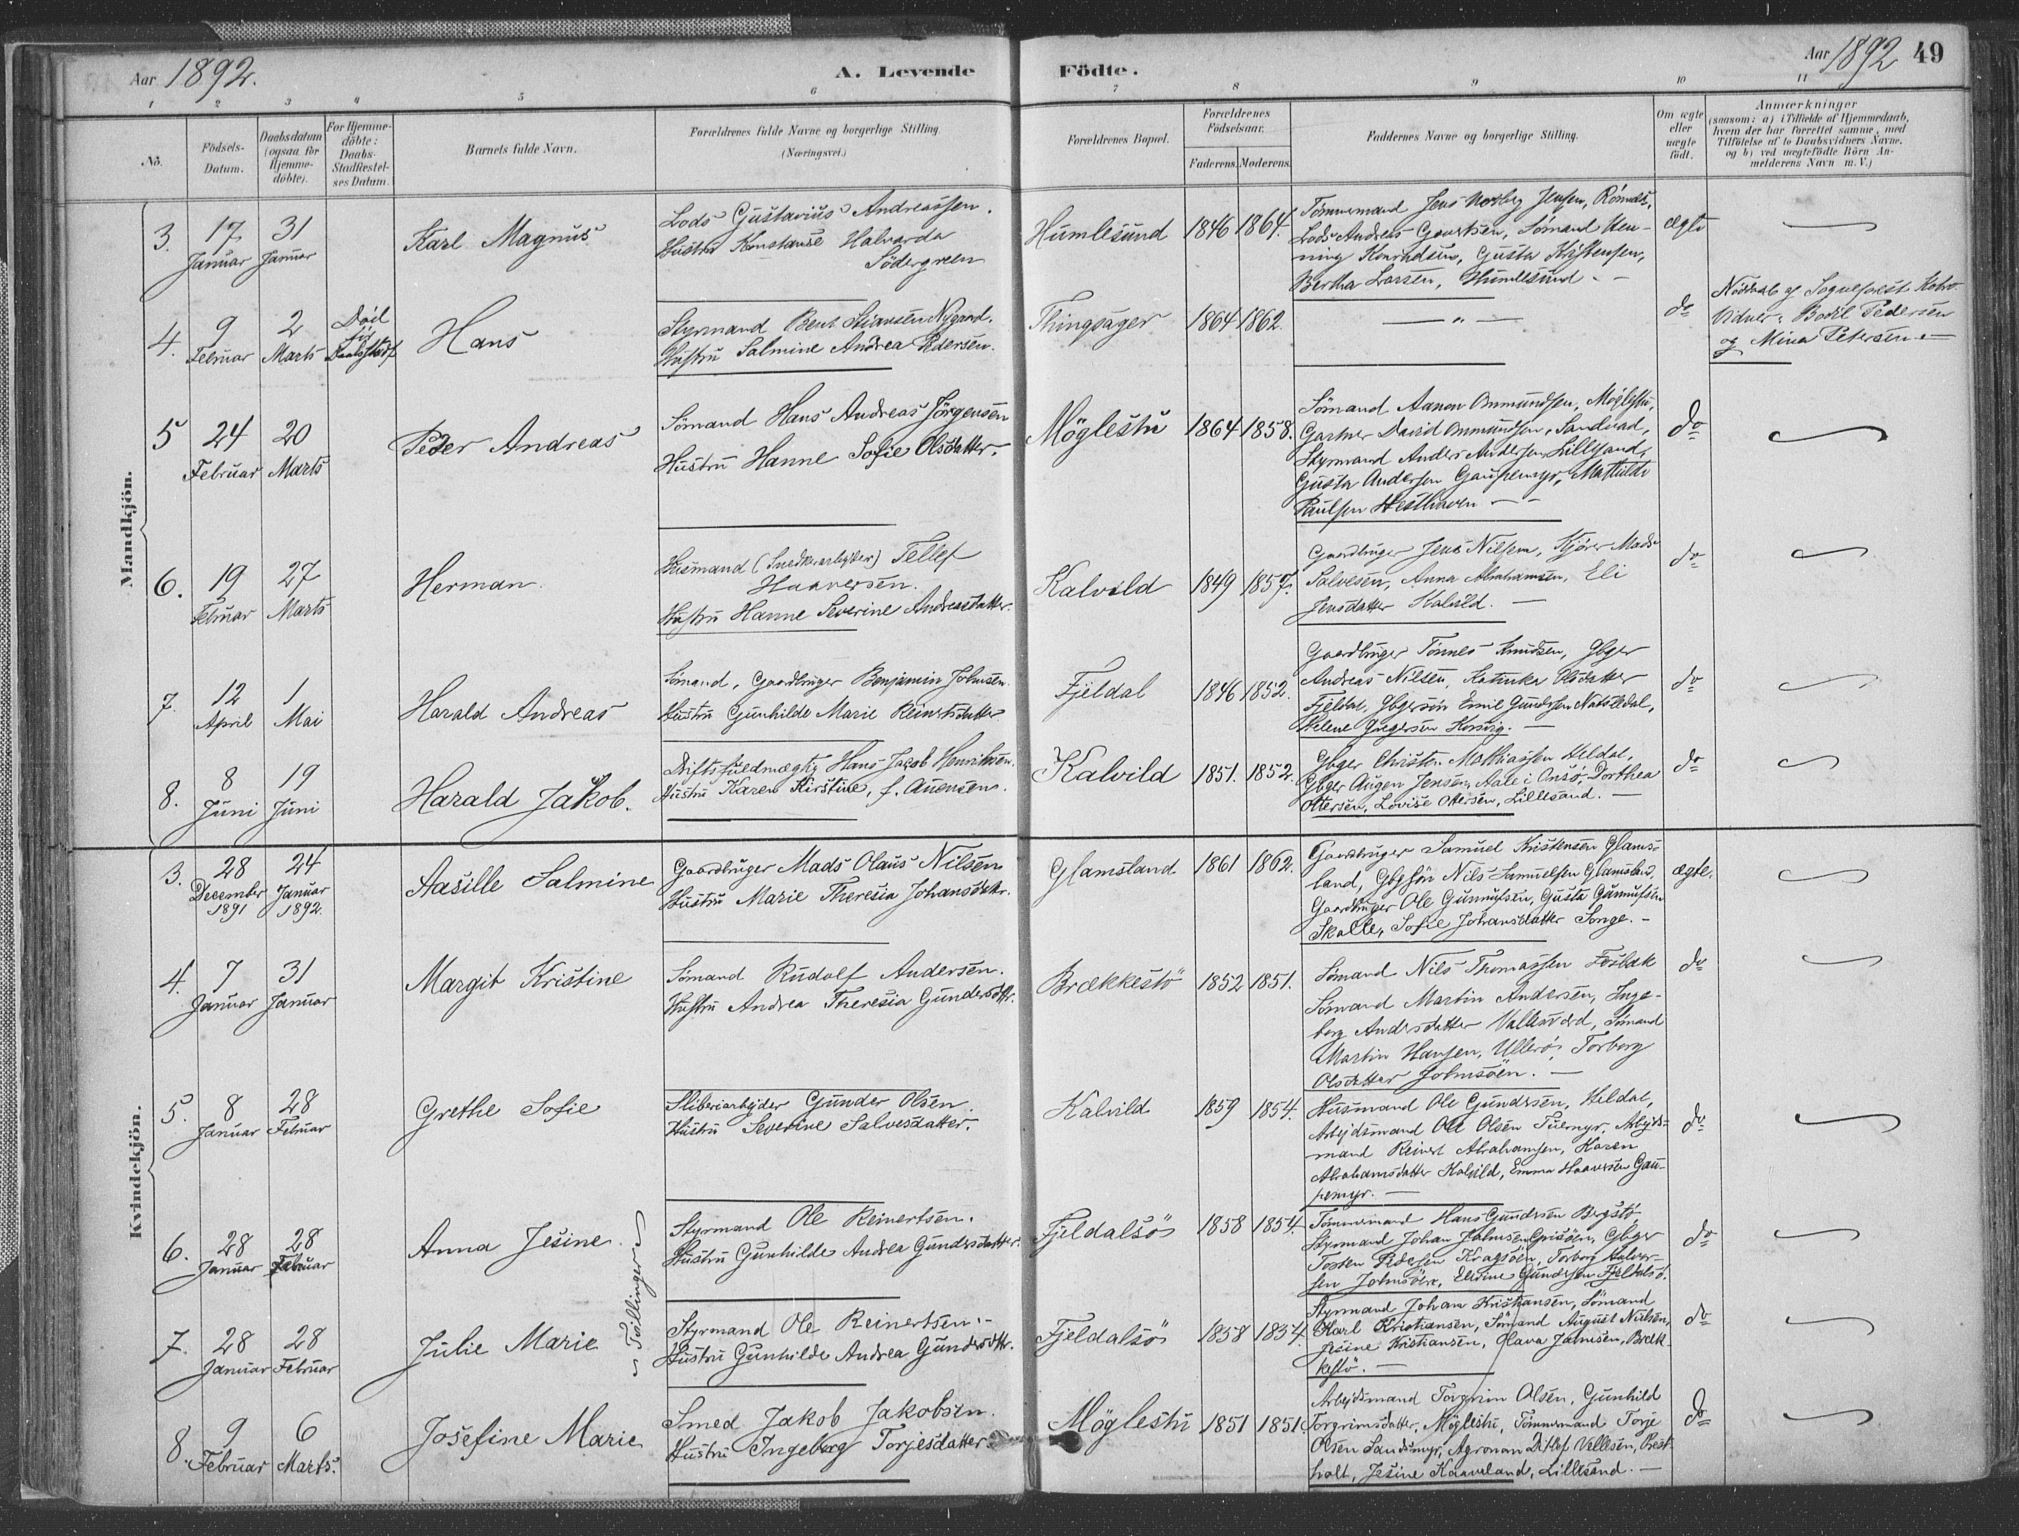 Aar 1892.
A. Levende Födte.
Aar 1892 49
1 2 3 4 5 6 7 8 9 10 11
No.
Födsels-
Datum.
Daabsdatum
(ogsaa for
Hjemme-
döbte).
For Hjemme-
döbte:
Daabs-
Stadfæstel-
ses Datum.
Barnets fulde Navn.
Forældrenes fulde Navne og borgerlige Stilling
(Næringsvei.)
Forældrenes Bopæl.
Forældrenes
Födselsaar.
Faderens. Moderens.
Faddernes Navne og borgerlige Stilling.
Om ægte
eller
uægte
født.
Anmærkninger
(saasom: a) i Tilfælde af Hjemmedaab,
hvem der har forrettet samme, med
Tilföielse af to Daabsvidners Navne,
og b) ved uægtefödte Börn An-
melderens Navn m. V.)
Mandkjön.
3. 17 Januar
31 Januar
Karl Magnus
Lods Gustavius Andreassen.
Hustru Konstanse Halvarda
Södergreen
Humlesund
1846 1864.
Tömmermand Jens Norberg Jensen,
Lods Andreas Gevertsen, Sömand Hen-
ning Konradsen, Gusta Kristensen,
Bertha Larsen, Humlesund -
ægte
4. 9 Februar
2 Marts
Hans
Styrmand Bent Stiansen Nygaard.
Hustru Salmine Andrea Pedersen.
Thingsager
1864 1862.
— " —
do
Nöddaab af Sogneprest
Vidner: Bodil Pedersen
og Mina Petersen. —
5 24 Februar
20 Marts
Peder Andreas
Sömand Hans Andreas Jörgensen
Hustru Hanne Sofie Olsdatter.
Möglestu
1864 1858.
Sömand Aanon Ommundsen, Möglestu,
Gartner David Ommundsen, Sandvad,
Styrmand Anders Andersen Lillesand,
Gusta Andersen Gaupemyr, Mathilde
Paulsen Hesthaven - -
do
6. 19 Februar
27 Marts
Herman.
Husmand (Snedkerarbejder) Tellef
Haaversen.
Hustru Hanne Severine Andreasdatter.
Kalvild
1849 1857.
Gaardbruger Jens Nilsen, Kjörer Mads
Salvesen, Anna Abrahamsen, Eli
Jensdatter Kalvild. —
do
7. 12 April
1 Mai
Harald Andreas
Sömand, Gaardbruger Benjamin Johnsen.
Hustru Gunhilde Marie Reinertsdatter
Fjeldal
1846 1852.
Gaardbruger Tönnes Knudsen, Gbger
Andreas Nilsen, Katinka Olsdatter
Fjeldal, Gbgersön Emil Gundersen
Helene Jörgensen —
do
8. 8 Juni
19 Juni
Harald Jakob.
Driftsfuldmægtig Hans Jacob Henriksen.
Hustru Karen Kirstine, f. Auensen.
Kalvild
1851. 1852.
Gbger Christen Mathiassen Heldal,
Gbger Augen Jensen, Aale i Onsö, Dorthea
Ottersen, Lovise Ottersen, Lillesand. —
do
Kvindekjön.
3. 28 December 1891
24 Januar 1892.
Aasille Salmine
Gaardbruger Mads Olaus Nilsen
Hustru Marie Theresia Johansdattr.
Glamsland
1861 1862.
Gaardbruger Samuel Kristensen Glams-
land, Gbgsön Nils Samuelsen Glamsland,
Gaardbruger Ole Gunnufsen, Gusta Gunnufsen
Skalle, Sofie Johansdatter Songe. -
ægte.
4. 7 Januar
31 Januar
Margit Kristine
Sömand Rudolf Andersen.
Hustru Andrea Theresia Gundersdttr.
Brækkestö
1852 1851.
Sömand Nils Thomassen Fosbæk
Sömand Martin Andersen, Inge-
borg Andersdatter Vallesværd, Sömand
Martin Hansen, Ulleröe, Torborg
Olsdatter Johnsöen. —
do
5. 8 Januar
28 Februar
Grethe Sofie
Sliberiarbejder Gunder Olsen.
Hustru Severine Salvesdatter.
Kalvild
1859 1854.
Husmand Ole Gundersen, Heldal,
Arbejdsmand Ole Olsen Tuemyr, Arbejds-
mand Reinert Abrahamsen, Karen
Abrahamsdatter Kalvild, Emma Haaversen Gau-
pemyr. —
do
6. 28 Januar
28 Februar
Anna Jesine.
Tvillinger
Styrmand Ole Reinertsen.
Hustru Gunhilde Andrea Gundersdatter.
Fjeldalsö
1858 1854.
Tömmermand Hans Gundersen Bergstö
Styrmand Johan Johnsen Grisöen, Gbger
Tosten Pedersen Kragsöen, Torborg Halvor-
sen Johnsöen, Elevine Gundersen Fjeldalsö.
do
7. 28 Januar
28 Februar
Julie Marie
Styrmand Ole Reinertsen. -
Hustru Gunhilde Andrea Gundersdttr.
Fjeldalsö
1858 1854.
Styrmand Johan Kristiansen, Sömand
Karl Kristiansen, Sömand August Nielsen,
Jesine Kristiansen, Olava Johnsen, Bræk-
kestö. —
do
8. 9 Februar
6 Marts.
Josefine Marie
Smed Jakob Jakobsen.
Hustru Ingeborg Torjesdatter.
Möglestu
1851 1851
Arbejdsmand Torgrim Olsen, Gunhild
Torgrimsdatter, Möglestu, Tömmermand Torje
Olsen Sandsmyr, Agronom Ditlef Vellesen, Prest-
holt, Jesine Kaaveland, Lillesand. —
do